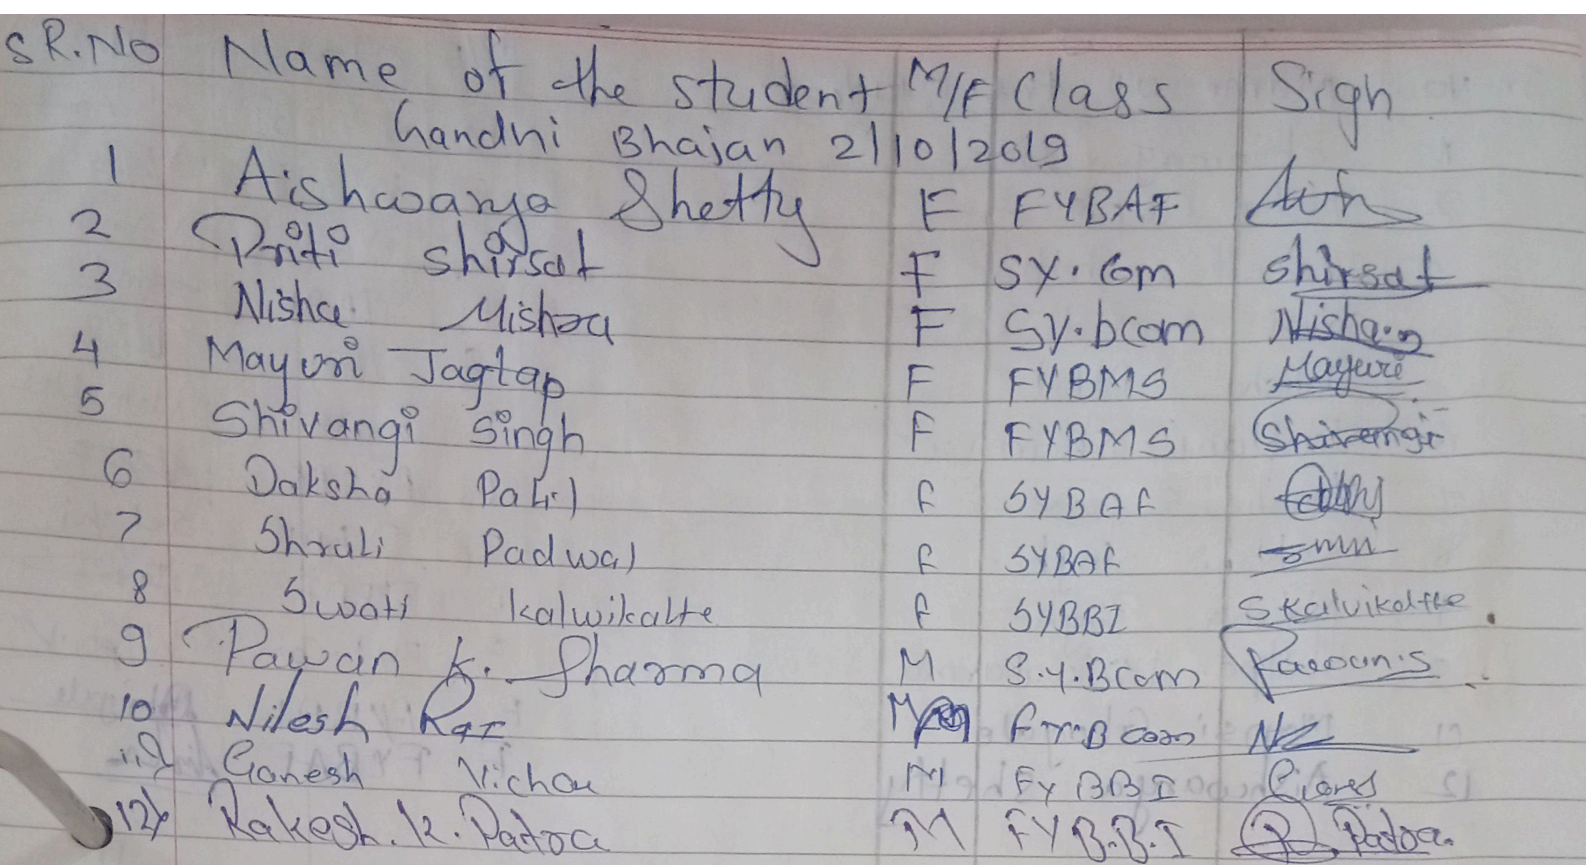 SR.No Name of the student M/F Class Sigh
Gandhi Bhajan 2/10/2019
1 Aishwarya Shetty F FYBAF
2 Priti Shirsat F SY.Com Shirsat
3 Nisha Mishra F SY.bcom Nisha
4 Mayuri Jagtap F FYBMS Mayuri
5 Shivangi Singh F FYBMS Shivangi
6 Daksha Patil F SYBAF
7 Shruti Padwal F SYBAF
8 Swati kalwikatte F SYBBI Skalvikatte
9 Pawan k. Sharma M S.Y.Bcom Pawan.S
10 Nilesh Rai M F.Y.Bcom
11 Ganesh M FYBBI
12 Rakesh.K.Patra M FYB.B.I Patra